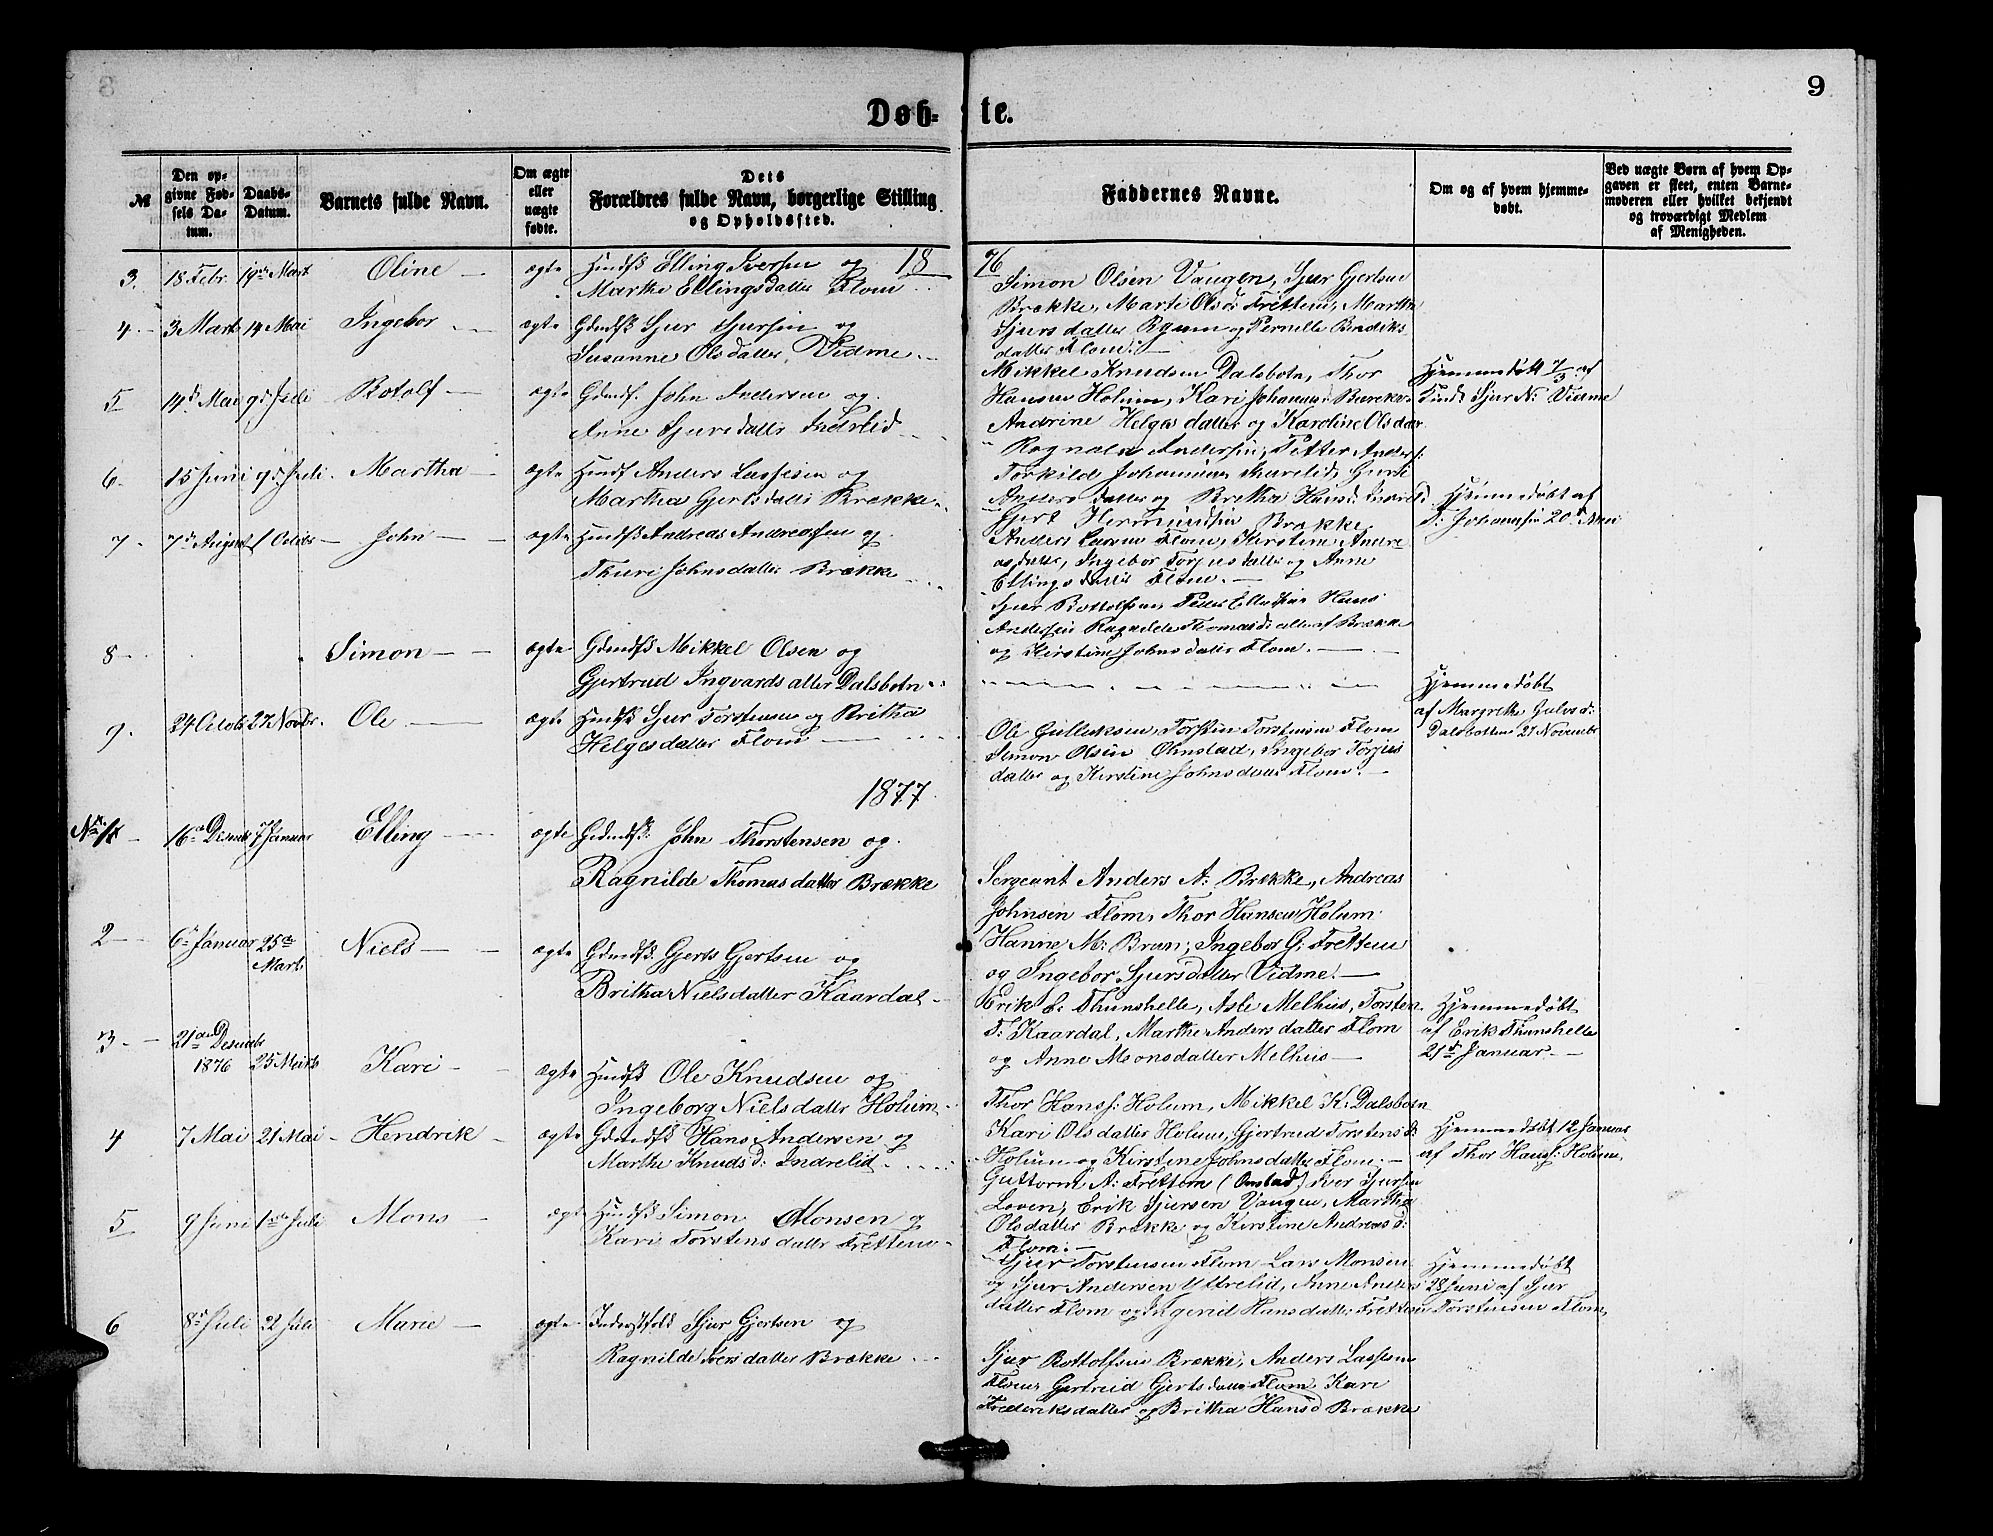 8
9
Døb- te.
№
Den opgivne Fødsels Datum.
Daabs-Datum.
Barnets fulde Navn.
Om ægte eller uægte fødte.
Dets Forældres fulde Navn, borgerlige Stilling og Opholdssted.
Faddernes Navne.
Om og af hvem hjemmedøbt.
Ved uægte Børn af hvem Opgaven er skeet, enten Barnemoderen eller hvilket bekjendt og troværdigt Medlem af Menigheden.
18 76
3. 18 Febr. 19de Mart Oline ægte Hmdfk Elling Iversen og
Marthe Ellingsdatter Flom
4 3 Mart 14 Mai Ingebor ægte Gdmdfk Sjur Sjursen og
Susanne Olsdatter, Vidme
5 14de Mai 9de Juli Botolf ægte Gdmdf. John Andersen og
Anne Sjursdatter Indrelid
6. 15 Juni 9de Juli Martha ægte Hmdf Anders Lassesen og
Martha Gjertsdatter Brække
7 7de August 1 Octbr John ægte Hmdfk Andreas Andreassen og
Thuri Johnsdatter Brække
8 Simon ægte Gdmdfk Mikkel Olsen og
Gjertrud Ingvardsdatter Dalsbotn
9. 24 Octob 27 Novbr. Ole ægte Hmdfk Sjur Torstensen og Britha
Helgesdatter Flom
1877
No 1 16de Desemb 7 Januar Elling ægte Gdmdfk: John Thorstensen og
Ragnilde Thomasdatter Brække
2 6te Januar 25de Mart Niels ægte Gdmdfk. Gjert Gjertsen og
Britha Nielsdatter Kaardal
3 21de Desemb 1876 25 Marts Kari ægte Hmdfk Ole Knudsen og
Ingeborg Nielsdatter Holum
4 7 Mai 21 Mai Hendrik ægte Gdmdfk Hans Andersen og
Marthe Knudsd: Indrelid
5 9 Juni 1ste Juli Mons ægte Hmdfk Simon Monsen og
Kari Torstensdatter Frettem
6 8de Juli 22 Juli Marie ægte Inderstfolk Sjur Gjertsen og
Ragnilde Iversdatter Brække
Simon Olsen Vangen, Sjur Gjertsen
Brække, Marte Olsd: Frettem, Martha
Sjursdatter Ryum og Pernille Brediks
datter Flom.
Mikkel Knudsen Dalsbotn, Thor
Hansen Holum, Kari Johannesd:
Andrine Helgesdatter og Karoline Olsdatter
Ragnald Andersen, Petter Anders:
Torkild Johannesen Guri
Andersdatter og Bretha Hansd:
Gjert Hermundsen Brække
Anders Larsen Flom, Kirstine Andre-
asdatter, Ingebor Torjusdatter og Anne
Ellingsdatter Flom.
Sjur Bottolfsen, Peder Ellingsen Hans
Andersen Ragnilde Thomasdatter af Brække
og Kirstine Johnsdatter Flom.
Ole Gulleksen, Torstin Torstensen Flom
Simon Olsen Onstad, Ingebor Torjus
datter og Kirstine Johnsdatter Flom.
Sergeant Anders A: Brække, Andreas
Johnsen Flom, Thor Hansen Holum
Hanne M: Brun, Ingebor G: Frettem
og Ingebor Sjursdatter Vidme.
Erik E: Thunshelle, Asle Melhus, Torsten
T: Kaardal, Marthe Andersdatter Flom
og Anne Monsdatter Melhus
Thor Hanss: Holum, Mikkel K: Dalsbotn
Kari Olsdatter Holum, Gjertrud Torstensd:
Holum og Kirstene Johnsdatter Flom.
Guttorm A: Frettem (Onstad) Iver Sjursen
Loven, Erik Sjursen Vangen, Martha
Olsdatter Brække og Kirstine Andreasd:
Flom.
Sjur Torstensen Flom Lars Monsen
og Sjur Andersen Uttrelid, Anne Anders
datter Flom og Ågerid Hansdatter Frettem
Sjur Bottolfsen Brække, Anders Lassesen
Flom Gjertrud Gjertsdatter Flom Kari
Frederiksdatter og Britha Hansd Brække
Hjemmedøbt 7/3 af
Sjur N: Vidme
Hjemmedøbt af
T: Johannesen 20de Mai
Hjemmedøbt
af Margrethe
Dalsbotten 21 Novembr
Hjemmedøbt
af Erik Thunshelle
21de Januar
Hjemmedøbt 12 Januar
af Thor Hanss: Holum.
Hjemmedøbt
28 Juni af Sjur
Torstensen Flom,